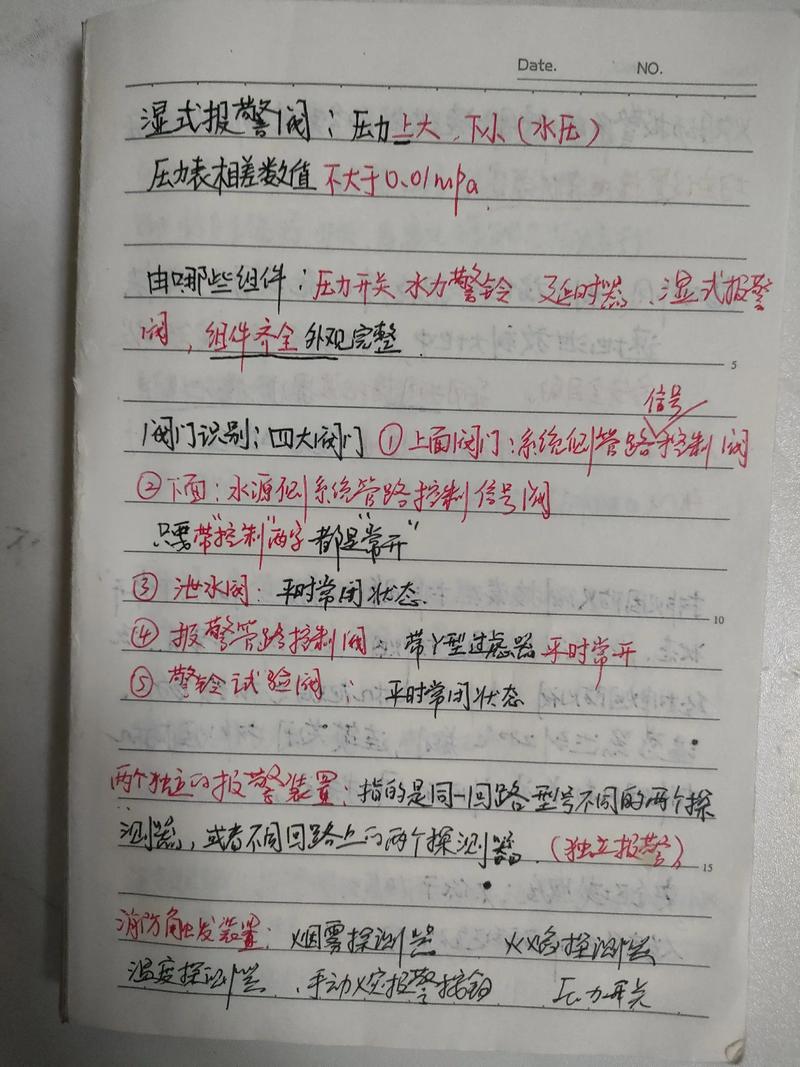 Date. NO.
湿式报警阀：压力上大、下小（水压）
压力表相差数值 不大于0.01mpa
由哪些组件：压力开关 水力警铃 延时器、湿式报警
阀，组件齐全 外观完整
5
信号
阀门识别：四大阀门 ①上面阀门：系统侧管路控制阀
②下面：水源侧系统管路控制信号阀
只要带"控制"两字 都是"常开"
③ 泄水阀：平时常闭状态
10
④ 报警管路控制阀、带Y型过滤器 平时常开
⑤ 警铃试验阀：平时常闭状态
两个独立的报警装置：指的是同一回路型号不同的两个探
测器，或者不同回路上的两个探测器、（独立报警）
15
消防触发装置：烟雾探测器 火焰探测器
温度探测器、手动火灾报警按钮 压力开关